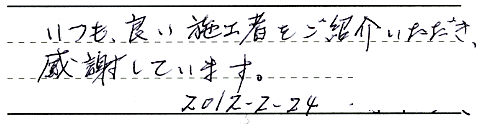 いつも、良い施工者をご紹介いただき、
感謝しています。
2012-2-24